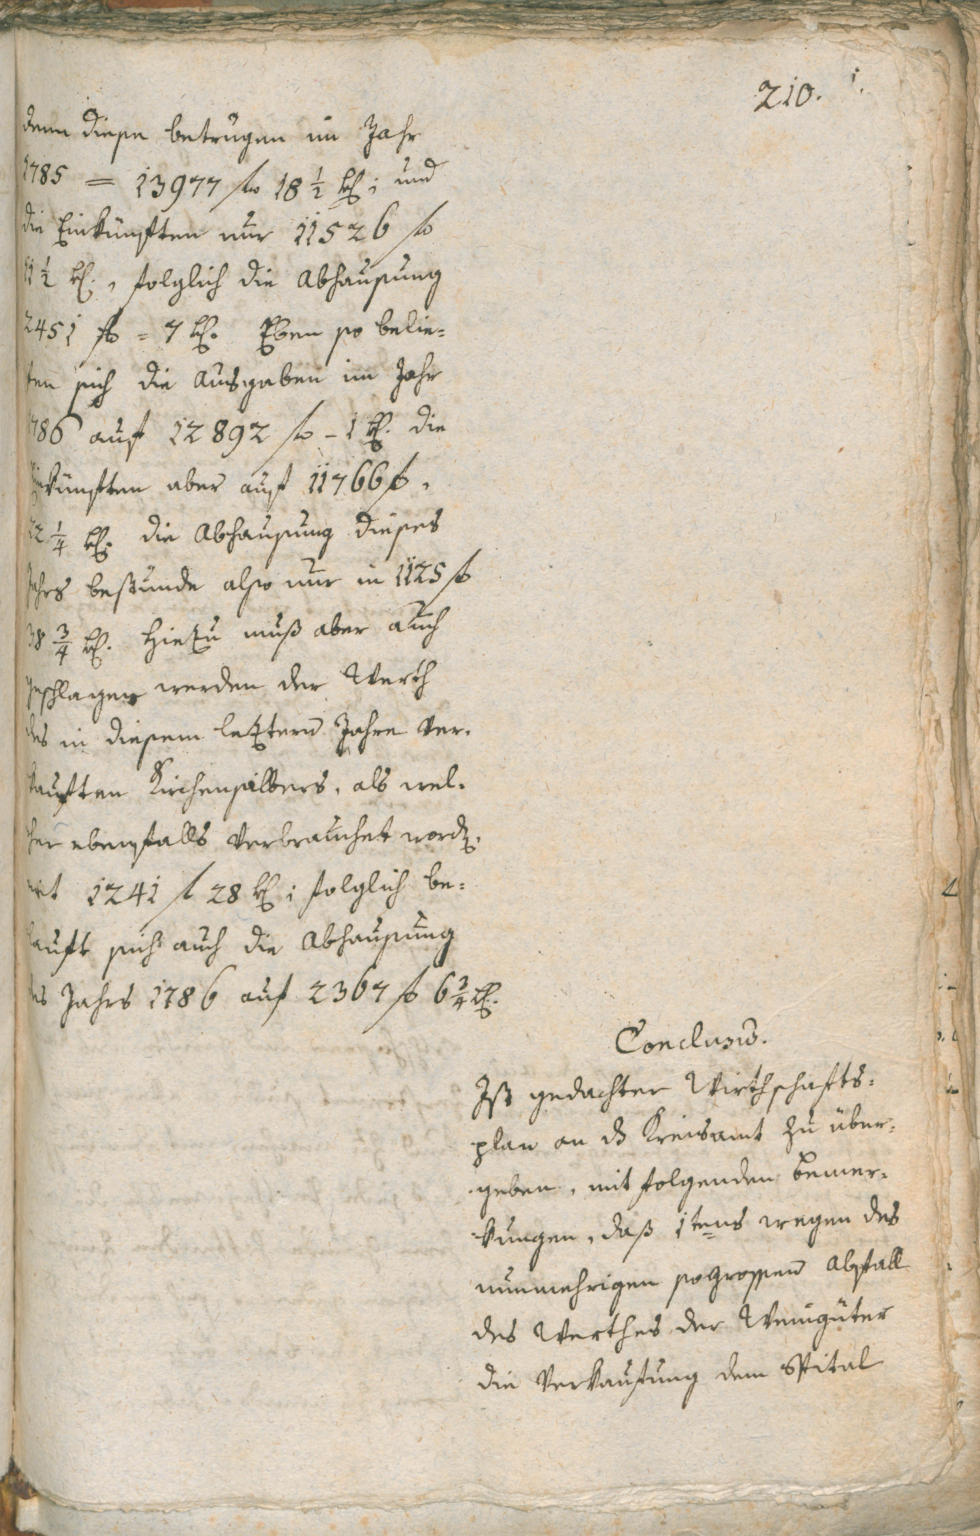 210.
denn diese betrugen im Jahr
1785 = 13977 f 18 1/2 kr; und
die Einkünften nur 11526 f
11 1/2 kr., folglich die Abhausung
2451 f = 7 kr. Eben so belie=
fen sich die Ausgaben im Jahr
1786 auf 12892 f - 1 kr. die
Einkünften aber auf 11766 f,
22 1/4 kr. die Abhausung dieses
Jahrs bestunde also nur in 1125 f
38 3/4 kr. Hiezu muß aber auch
geschlagen werden der Werth
des in diesem letztern Jahre ver=
kauften Kirchensilbers, als wel=
cher ebenfalls verbrauchet word.
mit 1241 f 28 kr; folglich be=
lauft sich auch die Abhausung
des Jahrs 1786 auf 2367 f 6 3/4 kr.
Conclusum.
Ist gedachter Wirthschafts=
plan an das Kreisamt zu über=
geben, mit folgenden Bemer=
kungen, daß 1tens wegen des
nunmehrigen so grossen Abfall
des Werthes der Weingüter
die Verkaufung dem Spital